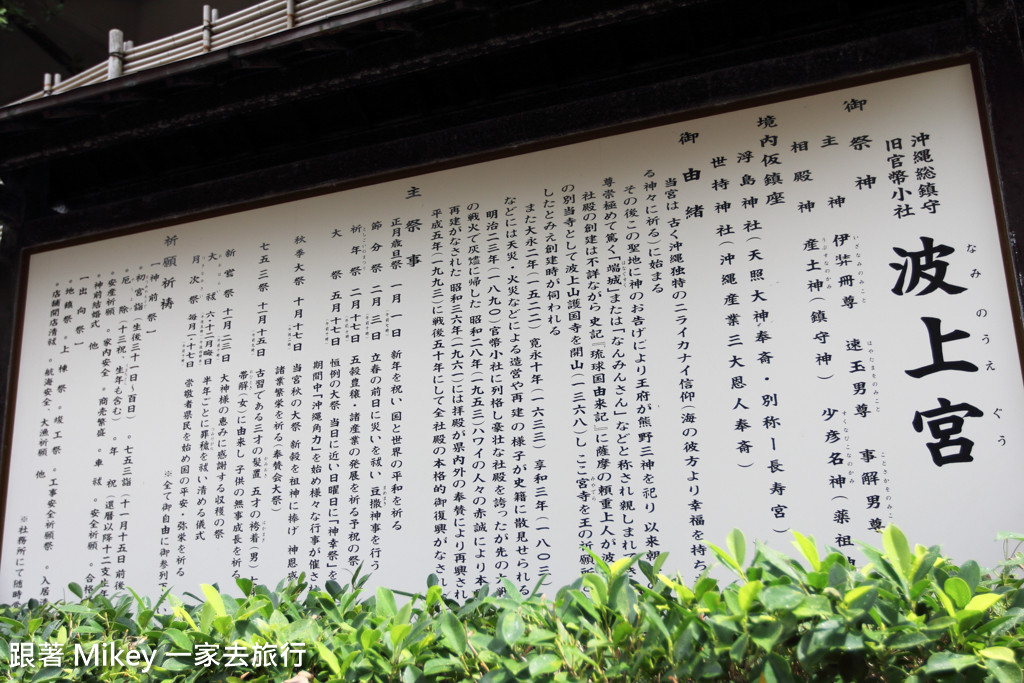 沖縄総鎮守
旧官幣小社
波上宮
なみのうえぐう
御祭神
主神
伊弉冊尊 速玉男尊 事解男尊
いざなみのみこと はやたまをのみこと ことさかをのみこと
相殿神
産土神(鎮守神) 少彦名神(薬祖神
うぶすなのかみ すくなひこなのかみ
境内仮鎮座
浮島神社(天照大神奉斎・別称ー長寿宮)
世持神社(沖縄産業三大恩人奉斎)
御由緒
当宮は 古く沖縄独特のニライカナイ信仰(海の彼方より幸福を持ち
る神々に祈る)に始まる
その後この聖地に神のお告げにより王府が熊野三神を祀り 以来朝
尊崇極めて篤く「端城」または「なんみんさん」などと称され親しまれ
社殿の創建は不詳ながら史記『琉球国由来記』に薩摩の頼重上人が波
の別当寺として波上山護国寺を開山(一三六八)し ここ宮寺を王の祈願所
したとみえ創建時が伺われる
また大永二年(一五二二) 寛永十年(一六三三) 享和三年(一八〇三)
などには天災・火災などによる造営や再建の様子が史籍に散見せられる
明治二三年(一八九〇)官幣小社に列格し豪壮な社殿を誇ったが先の大戦
の戦火て灰燼に帰した 昭和二八年(一九五三)ハワイの人々の赤誠により本
再建がなされた 昭和三六年(一九六一)には拝殿が県内外の奉賛により再興され
平成五年(一九九三)に戦後五十年にして全社殿の本格的御復興がなされ
主祭事
正月歳旦祭 一月一日 新年を祝い 国と世界の平和を祈る
節分祭 二月三日 立春の前日に災いを祓い 豆撒神事を行う
祈年祭 二月十七日 五穀豊穣・諸産業の発展を祈る予祝の祭
大祭 五月十七日 恒例の大祭 当日に近い日曜日に「神幸祭」を
期間中「沖縄角力」を始め様々な行事が催さ
秋季大祭 十月十七日 当宮秋の大祭 新穀を祖神に捧げ 神恩感
諸業繁栄を祈る(奉賛会大祭)
七五三祭 十一月十五日 古習である三才の髪置 五才の袴着(男)
帯解(女)に由来し 子供の無事成長を祈る
新宮祭 十一月二三日 大神様の恵みに感謝する収穫の祭
大祓 六・十二月晦日 半年ごとに罪穢を祓い清める儀式
月次祭 毎月一・十七日 崇敬者県民を始め国の平安・弥栄を祈る
※全て御自由に御参列下
祈願祈祷
【神前祭】
。初宮詣(生後三十一日〜百日) 。七五三詣(十一月十五日前後
。厄除(十三祝・生年も含む) 。年祝(還暦以降十二支生年
。安産祈願 。家内安全 。商売繁盛 。車祓 。安全祈願 。合格
。神前結婚式 他
【出向祭】
。地鎮祭 。上棟祭 。竣工祭 。工事安全祈願祭 。入居
。店舗開店清祓 。航海安全、大漁祈願 他
※社務所にて随時受
跟著 Mikey 一家去旅行